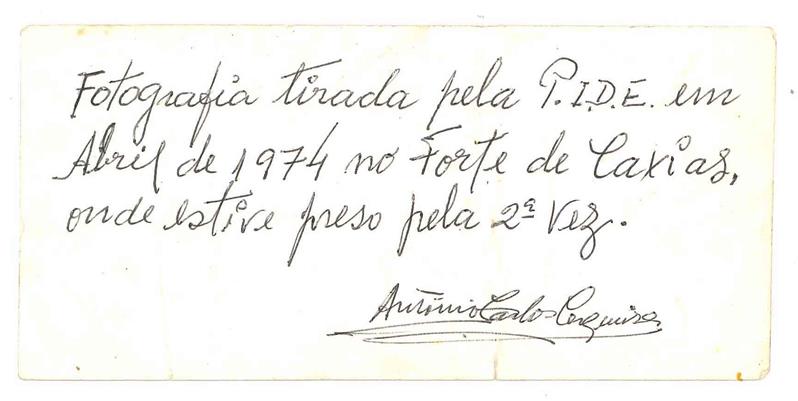 Fotografia tirada pela P.I.D.E. em
Abril de 1974 no Forte de Caxias,
onde estive preso pela 2ª vez.
António Carlos Cerqueira